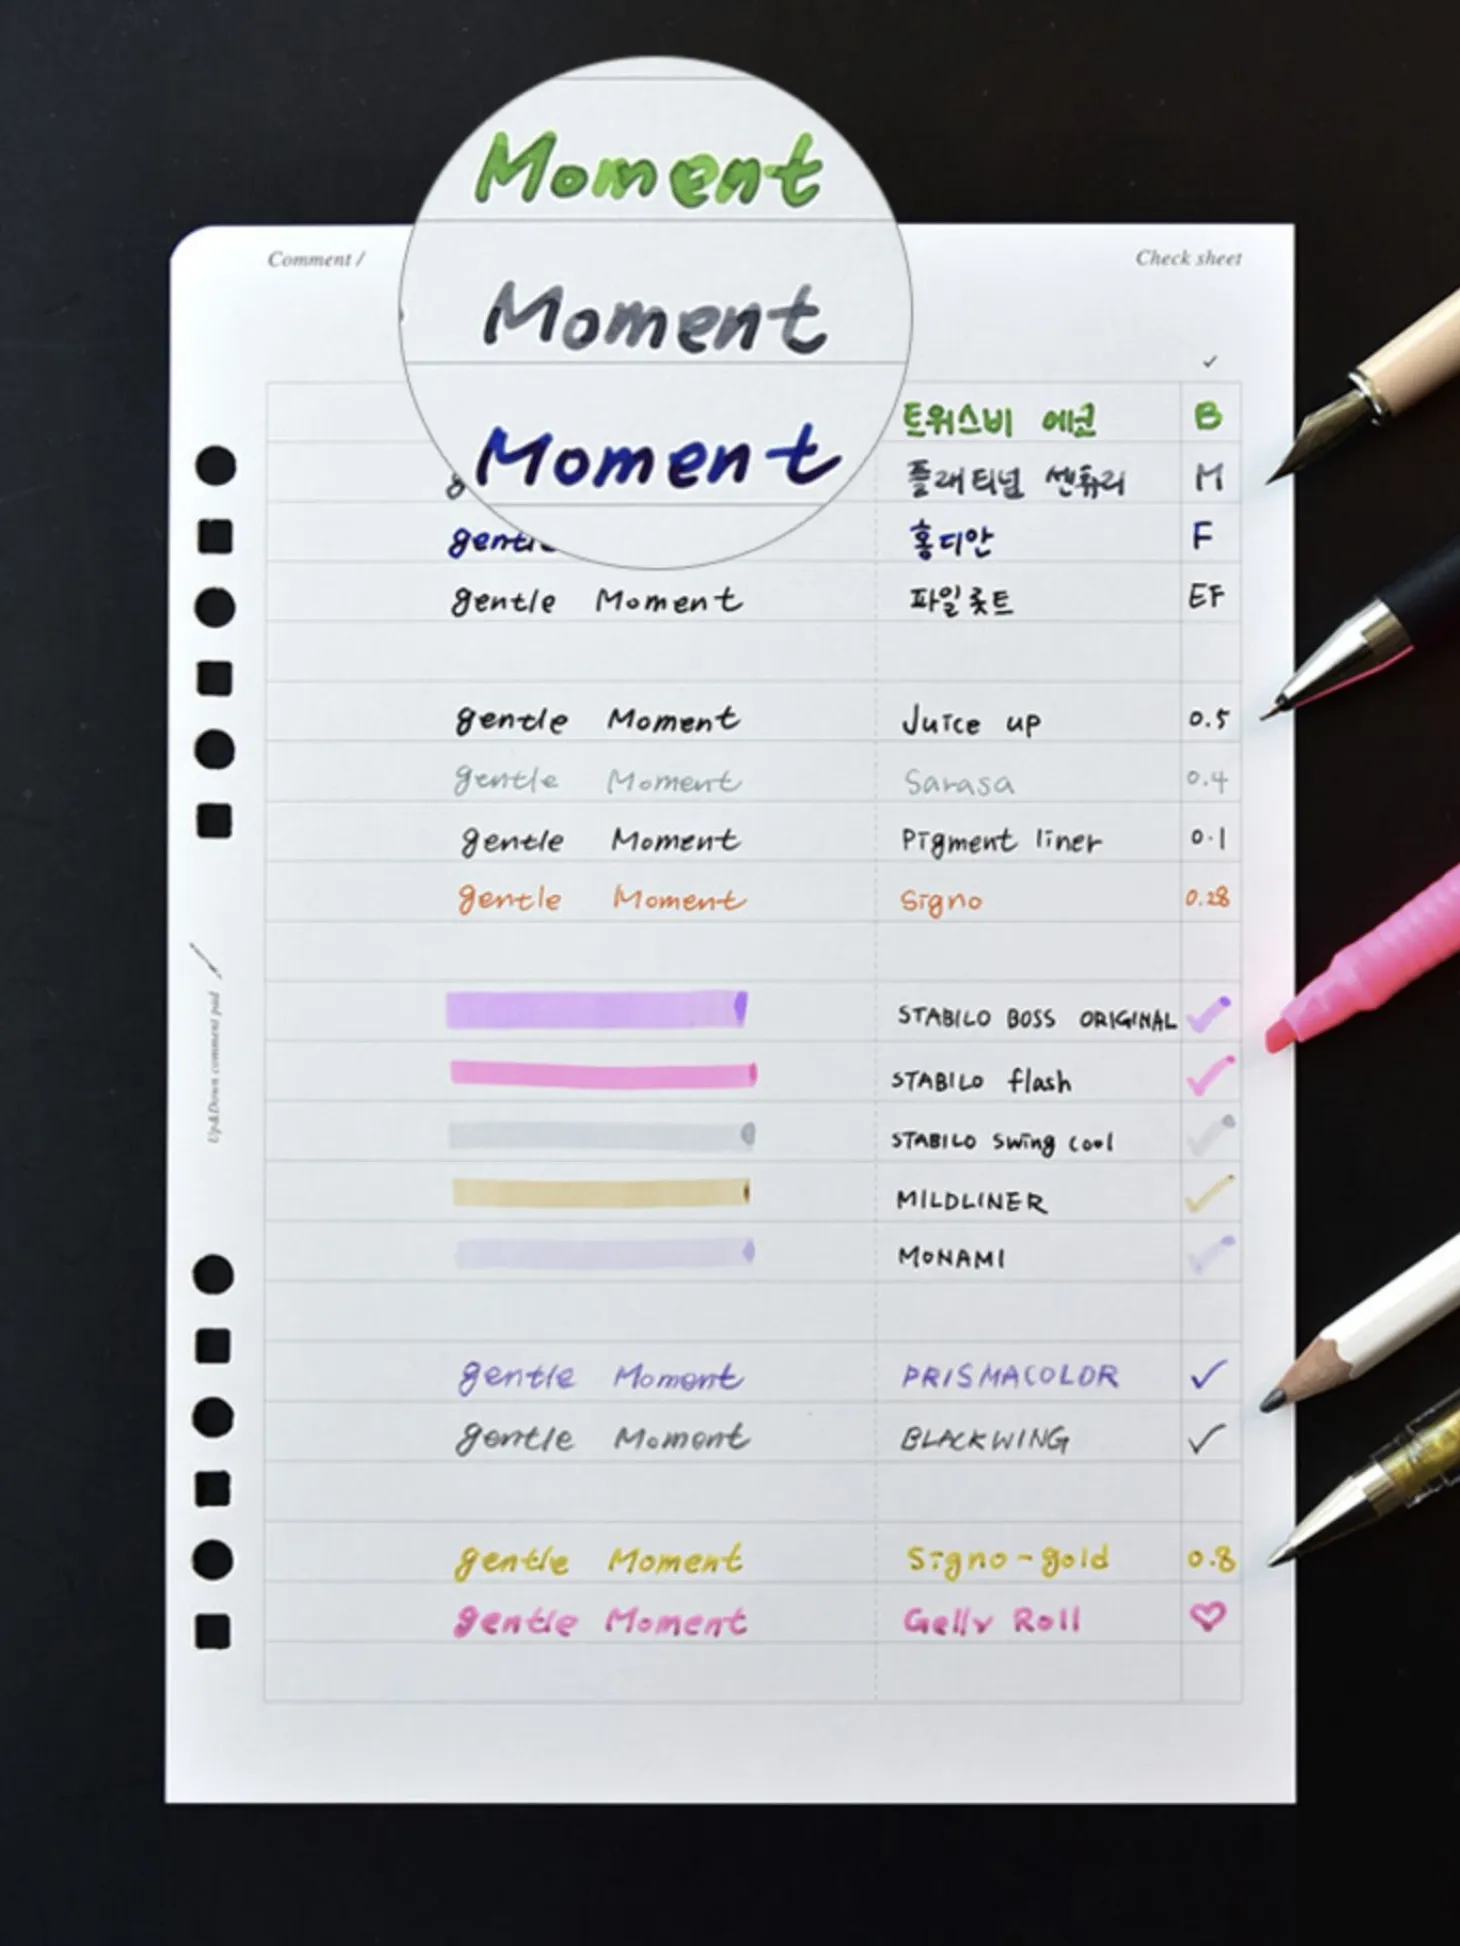 Moment
Moment
Moment
Comment /
Check sheet
✓
트위스비 에코 B
플래티넘 센츄리 M
gentle 홍디안 F
gentle Moment 파일롯트 EF
gentle Moment Juice up 0.5
gentle Moment Sarasa 0.4
gentle Moment Pigment liner 0.1
gentle Moment Signo 0.28
STABILO BOSS ORIGINAL ✓
STABILO flash ✓
STABILO swing cool ✓
MILDLINER ✓
MONAMI ✓
gentle Moment PRISMACOLOR ✓
gentle Moment BLACKWING ✓
gentle Moment Signo-gold 0.8
gentle Moment Gelly Roll ♡
Up&Down comment pad